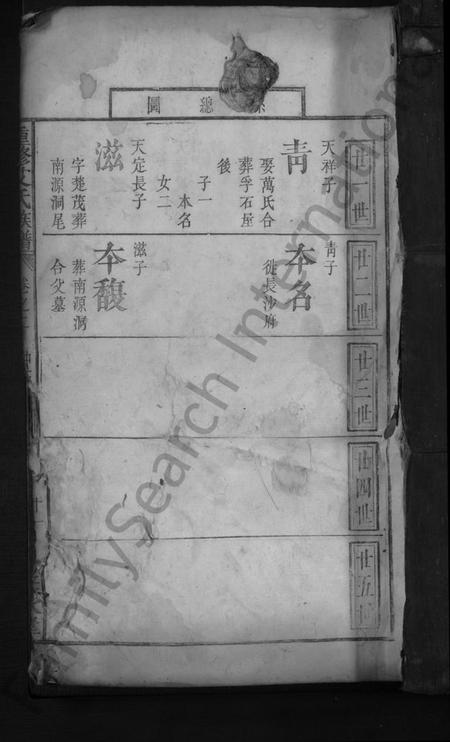 總圖
廿一世
天祥子
青
娶萬氏合
葬孚石屋
後
子一
本名
女二
天定長子
滋
字楚茂葬
南源洞尾
廿二世
青子
本名
徙長沙府
滋子
本馥
葬南源洞
合父墓
廿三世
廿四世
廿五
重修
氏族譜
卷之
FamilySearch International